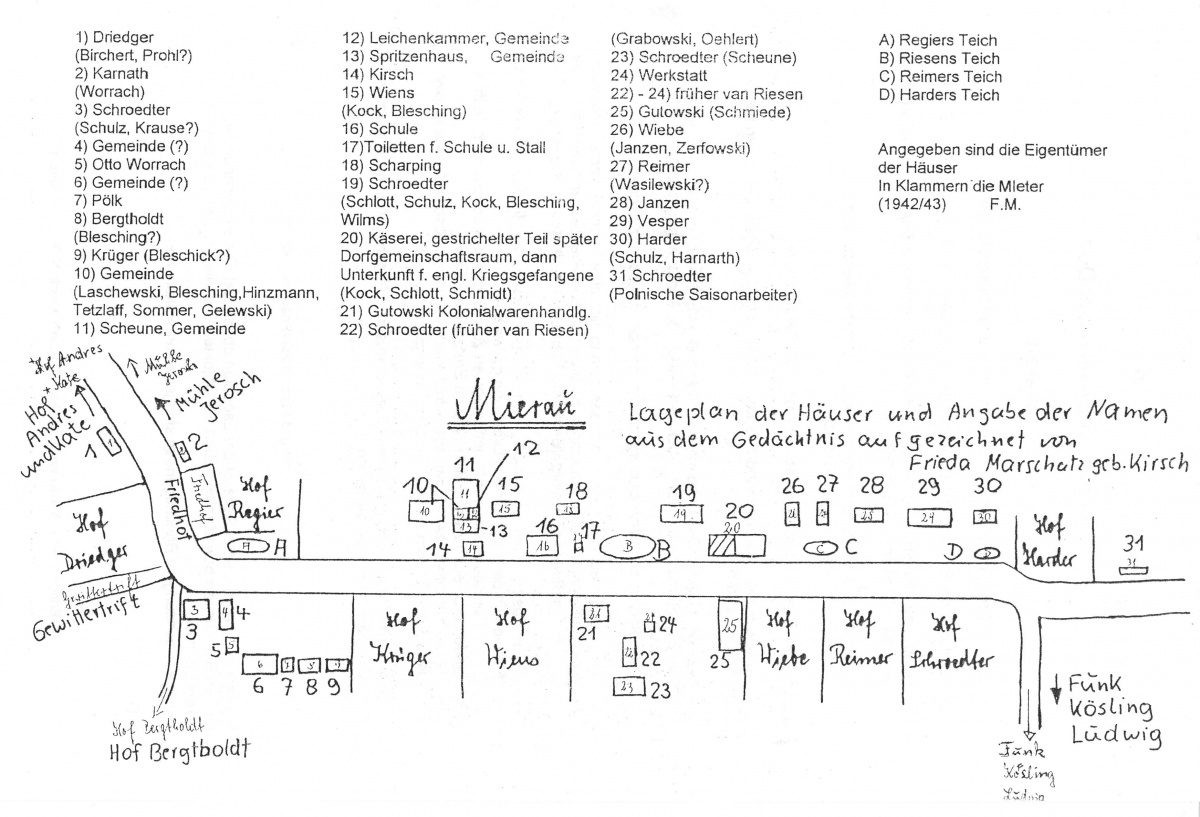 1) Driedger
(Birchert, Prohl?)
2) Karnath
(Worrach)
3) Schroedter
(Schulz, Krause?)
4) Gemeinde (?)
5) Otto Worrach
6) Gemeinde (?)
7) Pölk
8) Bergtholdt
(Blesching?)
9) Krüger (Bleschick?)
10) Gemeinde
(Laschewski, Blesching,Hinzmann,
Tetzlaff, Sommer, Gelewski)
11) Scheune, Gemeinde
12) Leichenkammer, Gemeinde
13) Spritzenhaus, Gemeinde
14) Kirsch
15) Wiens
(Kock, Blesching)
16) Schule
17)Toiletten f. Schule u. Stall
18) Scharping
19) Schroedter
(Schlott, Schulz, Kock, Blesching,
Wilms)
20) Käserei, gestrichelter Teil später
Dorfgemeinschaftsraum, dann
Unterkunft f. engl. Kriegsgefangene
(Kock, Schlott, Schmidt)
21) Gutowski Kolonialwarenhandlg.
22) Schroedter (früher van Riesen)
(Grabowski, Oehlert)
23) Schroedter (Scheune)
24) Werkstatt
22) - 24) früher van Riesen
25) Gutowski (Schmiede)
26) Wiebe
(Janzen, Zerfowski)
27) Reimer
(Wasilewski?)
28) Janzen
29) Vesper
30) Harder
(Schulz, Harnarth)
31 Schroedter
(Polnische Saisonarbeiter)
A) Regiers Teich
B) Riesens Teich
C) Reimers Teich
D) Harders Teich
Angegeben sind die Eigentümer
der Häuser
In Klammern die MIeter
(1942/43) F.M.
Hof Andres
+ Kate
Mühle
Jerosch
Hof
Andres
und Kate
Mühle
Jerosch
Mieraŭ
Lageplan der Häuser und Angabe der Namen
aus dem Gedächtnis aufgezeichnet von
Frieda Marschatz geb. Kirsch
1
2
Friedhof
Friedhof
Hof
Regier
A A
10 10
11 11
12
13 13
14 14
15 15
16 16
17
18 18
19 19
20 20
B B
26 26
27 27
28 28
29 29
30 30
C C
D D
Hof
Harder
31 31
Hof
Driedger
Gewittertrift
Gewittertrift
3 3
4 4
5 5
6 6
7 7
8 8
9 9
Hof
Krüger
Hof
Wiens
21 21
22 22
23 23
24 24
25 25
Hof
Wiebe
Hof
Reimer
Hof
Schroedter
Fŭnk
Kösling
Lŭdwig
Fŭnk
Kösling
Lŭdwig
Hof Bergtholdt
Hof Bergtboldt